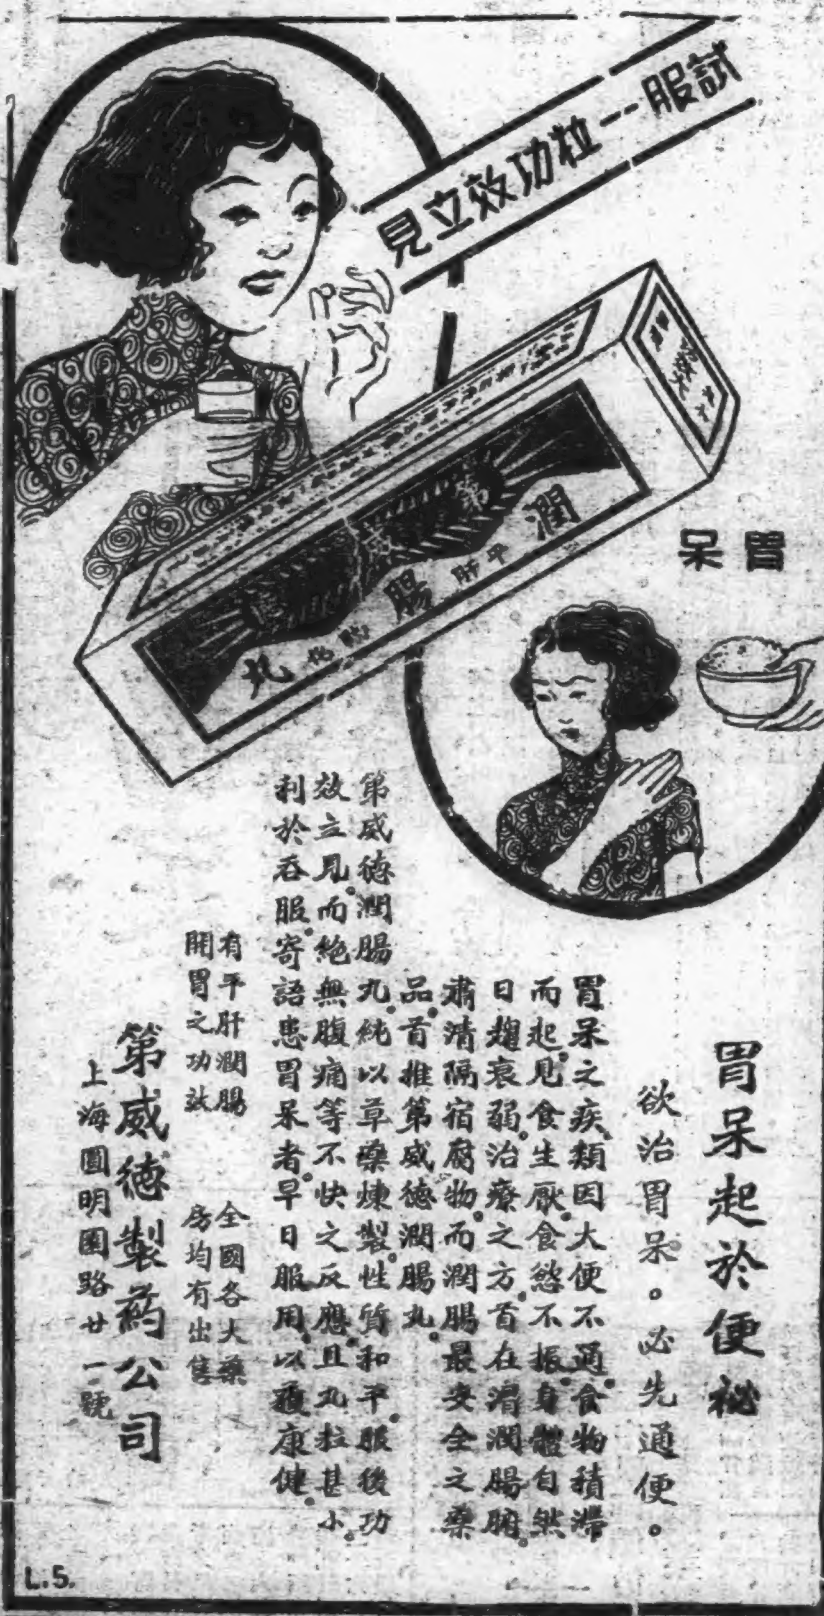 試服一粒功效立見
第威德
潤腸丸
平肝
胃呆
胃呆起於便祕
欲治胃呆。必先通便。
胃呆之疾。類因大便不通。食物積滯
而起。見食生厭。食慾不振。身體自然
日趨衰弱。治療之方。首在滑潤腸腑。
肅清隔宿腐物。而潤腸最安全之藥
品。首推第威德潤腸丸。
第威德潤腸丸。純以草藥煉製。性質和平。服後功
效立見。而絶無腹痛等不快之反應。且丸粒甚小。
利於吞服。寄語患胃呆者。早日服用。以復康健。
有平肝潤腸
開胃之功效
全國各大藥
房均有出售
第威德製葯公司
上海圓明園路廿一號
L.5.